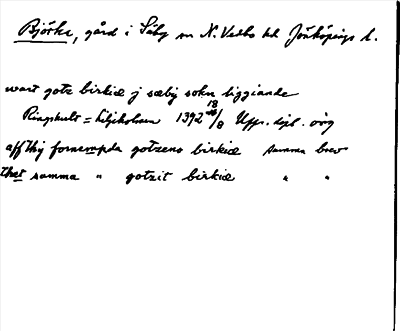 Björke, gård i Säby sn N. Vedbo hd Jönköpings l.
wart gotz birkiæ j sæby sokn liggiande
Ringshult = Liljeholmen 1392 18/8 Upps. dipl. orig
aff thy fornempda gotzeno birkiæ samma brev
thet samma " gotzit birkiæ " "